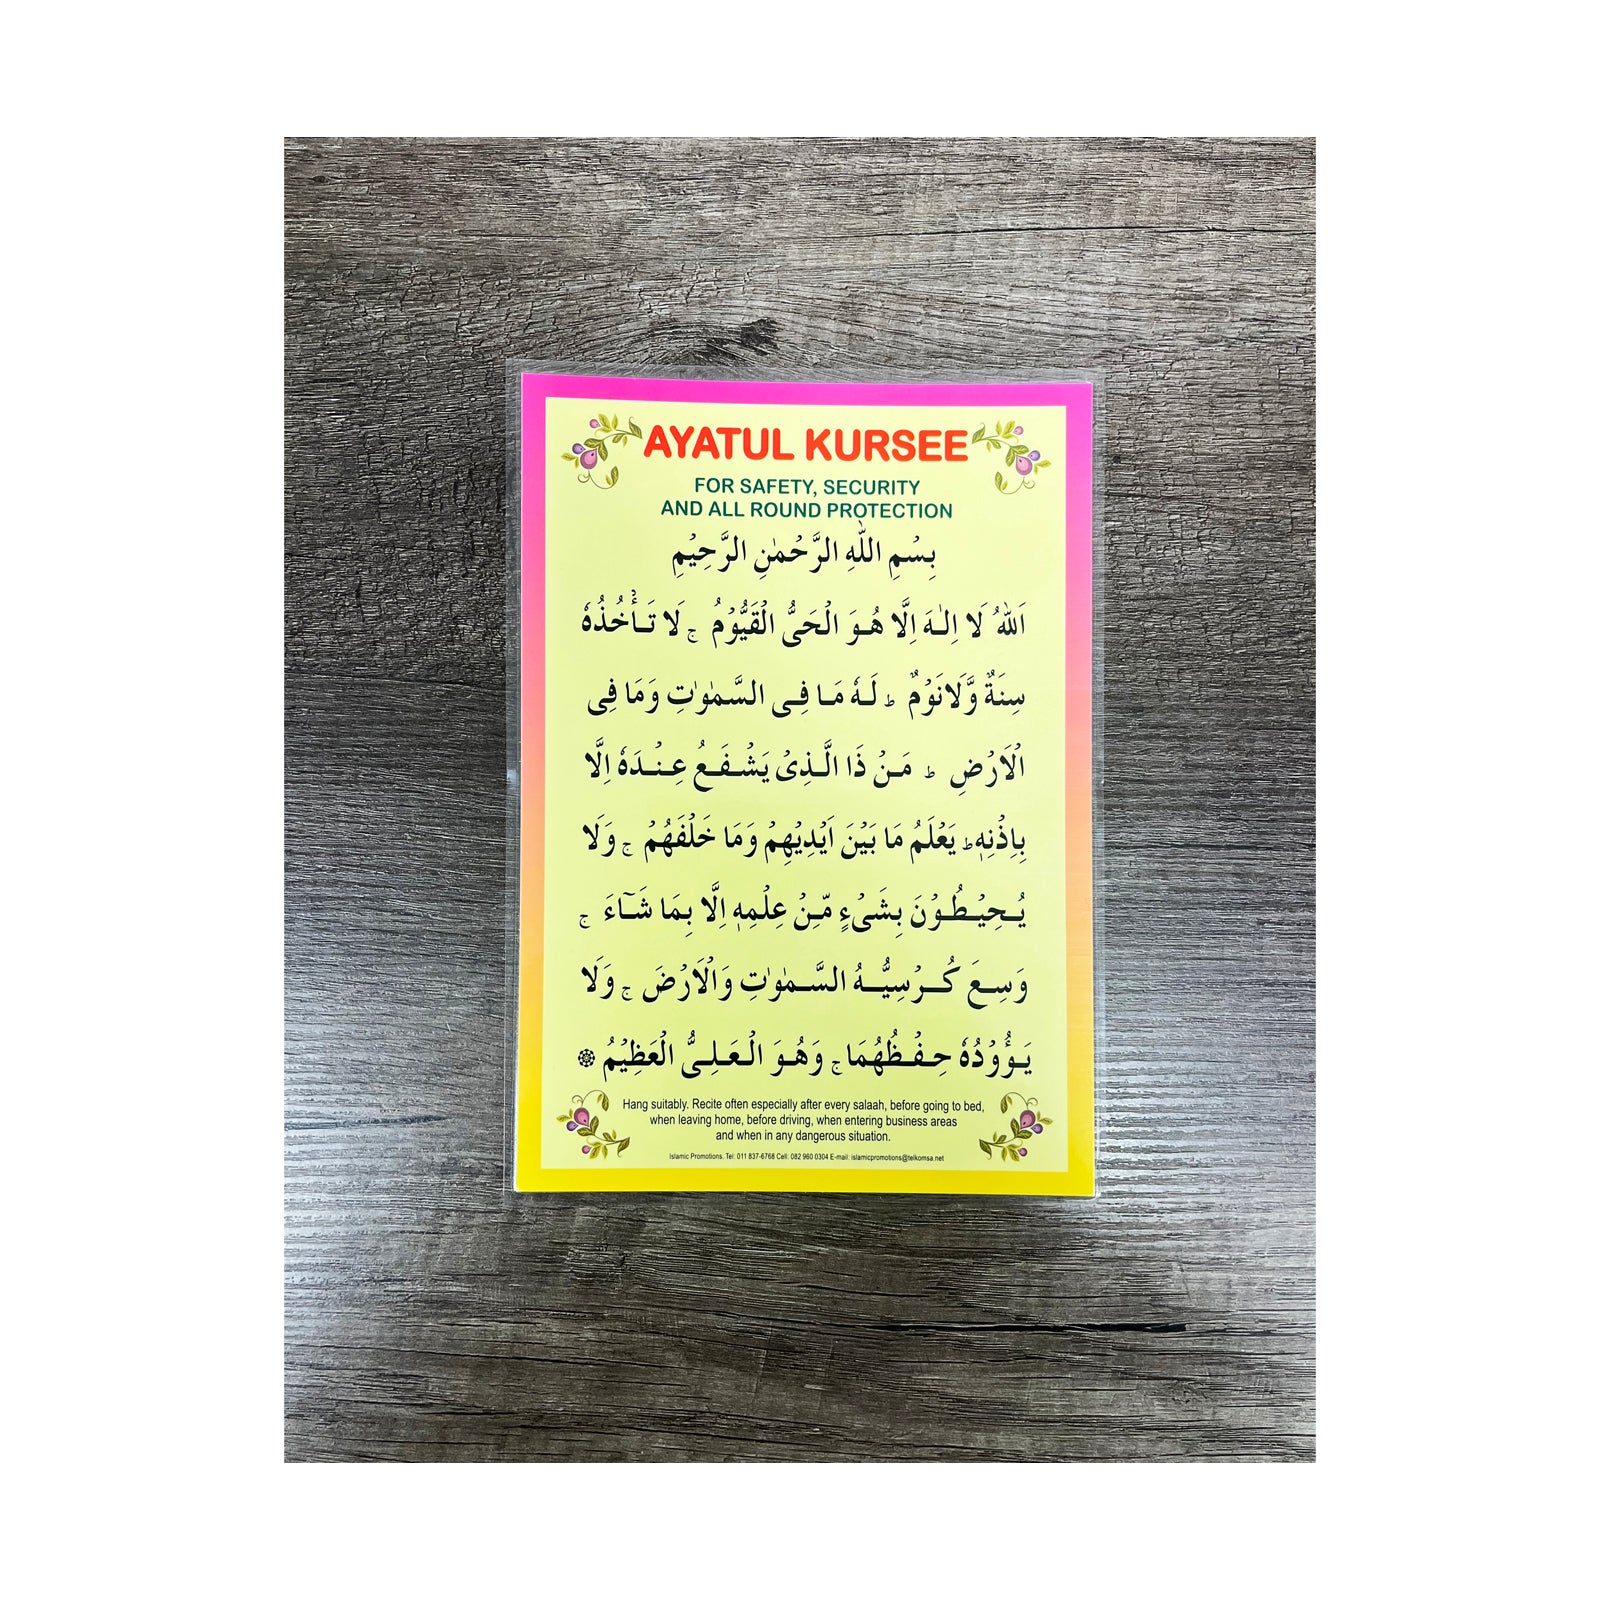 AYATUL KURSEE
FOR SAFETY, SECURITY
AND ALL ROUND PROTECTION
بِسْمِ اللّٰهِ الرَّحْمٰنِ الرَّحِيْمِ
اَللّٰهُ لَا اِلٰـهَ اِلَّا هُـوَ الْحَىُّ الْقَيُّوْمُ ۚ لَا تَـأْخُذُهٗ
سِنَةٌ وَّلَانَوْمٌ ؕ لَـهٗ مَـا فِـى السَّمٰوٰتِ وَمَا فِى
الْاَرْضِ ؕ مَـنْ ذَا الَّـذِىْ يَشْـفَـعُ عِـنْـدَهٗ اِلَّا
بِاِذْنِهٖ ؕ يَعْلَمُ مَا بَيْنَ اَيْدِيْهِمْ وَمَا خَلْفَهُمْ ۚ وَلَا
يُـحِيْـطُـوْنَ بِشَىْءٍ مِّـنْ عِلْمِهٖ اِلَّا بِمَا شَـآءَ ۚ
وَسِـعَ كُــرْسِيُّــهُ السَّـمٰوٰتِ وَالْاَرْضَ ۚ وَلَا
يَـؤُوْدُهٗ حِـفْـظُهُمَا ۚ وَهُـوَ الْـعَـلِـىُّ الْعَظِيْمُ
Hang suitably. Recite often especially after every salaah, before going to bed,
when leaving home, before driving, when entering business areas
and when in any dangerous situation.
Islamic Promotions. Tel: 011 837-6768 Cell: 082 960 0304 E-mail: islamicpromotions@telkomsa.net